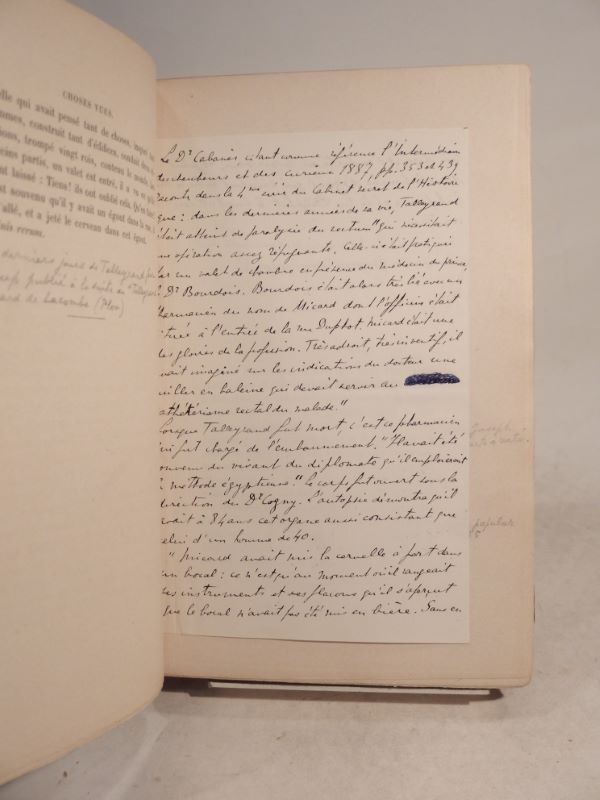 CHOSES VUES.
elle qui avait pensé tant de choses, inspiré
mmes, construit tant d'édifices, conduit deux
ions, trompé vingt rois, contenu le monde. Les
decins partis, un valet est entré, il a vu
ent laissé : Tiens! ils ont oublié cela. Qu'en
est souvenu qu'il y avait un égout dans la rue, il
allé, et a jeté le cerveau dans cet égout.
Finis rerum.
derniers jours de Talleyrand
publié à la suite du Talleyrand
ard de Lacombe (Plon)
Le Dr Cabanès, citant comme référence l'Intermédiaire
des chercheurs et des curieux 1887, pp. 353 et 439
raconte dans la 4me série du Cabinet secret de l'Histoire
que : dans les dernières années de sa vie, Talleyrand
était atteint de paralysie du rectum "qui nécessitait
une opération assez répugnante. Celle-ci était pratiquée
par un valet de chambre en présence du médecin du prince,
Dr Bourdois. Bourdois était alors très lié avec un
pharmacien du nom de Micard dont l'officine était
située à l'entrée de la rue Duphot. Micard était une
des gloires de la profession. Très adroit, très inventif, il
avait imaginé sur les indications du docteur une
cuiller en baleine qui devait servir au
cathétérisme rectal du malade."
Lorsque Talleyrand fut mort, c'est ce pharmacien
qui fut chargé de l'embaumement. "Il avait été
convenu du vivant du diplomate qu'il emploierait
la méthode égyptienne." Le corps fut ouvert sous la
direction du Dr Cogny. L'autopsie démontra qu'il
avait à 84 ans cet organe aussi consistant que
celui d'un homme de 40.
" Micard avait mis la cervelle à part dans
un bocal : ce n'est qu'au moment où il rangeait
ses instruments et ses flacons qu'il s'aperçut
que le bocal n'avait pas été mis en bière. Sans en